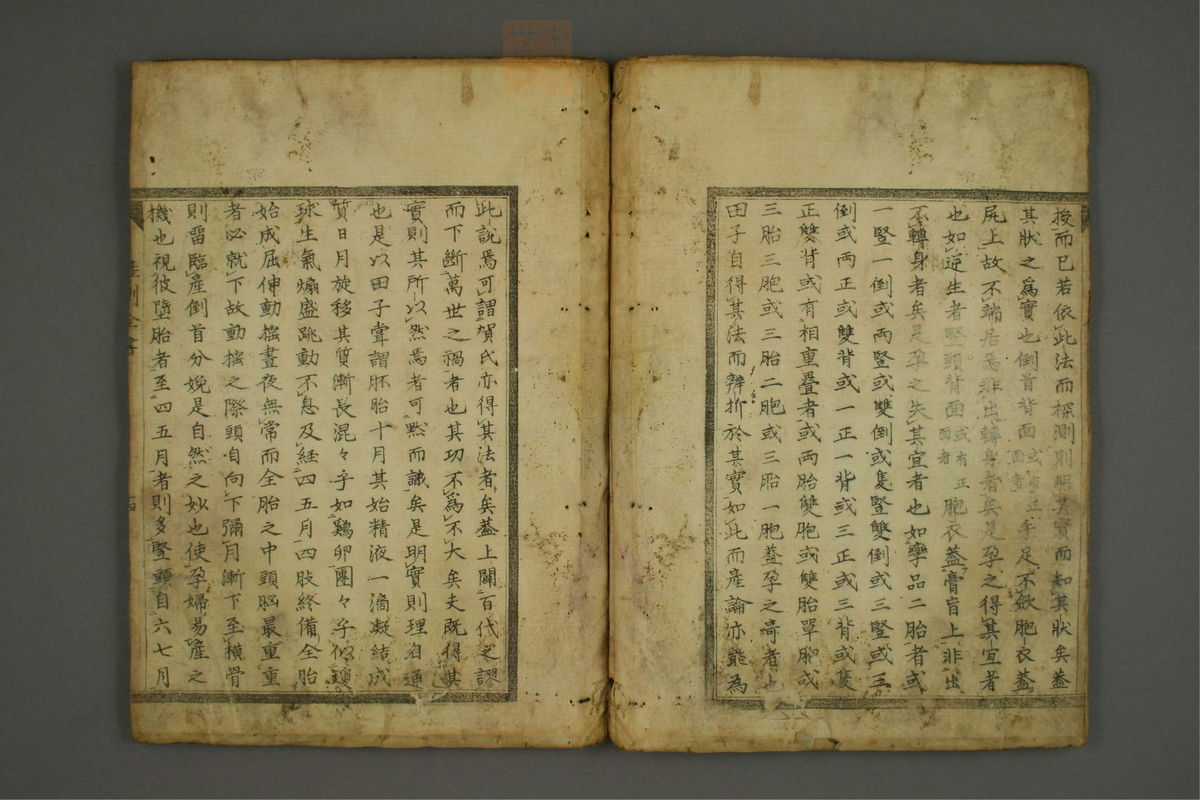 按而已若依此法而探測則明其實而知其狀矣蓋
其狀之爲實也倒首背面或有正面者手足不斂胞衣蓋
尻上故不端居焉非出轉身者矣是孕之得其宜者
也如逆生者竪頭背面或有正面者胞衣蓋膏肓上非出
不轉身者矣是孕之失其宜者也如孿品二胎者或
一竪一倒或兩竪或雙倒或隻竪雙倒或三竪或三
倒或兩正或雙背或一正一背或三正或三背或隻
正雙背或有相重疊者或兩胎雙胞或雙胎單胞或
三胎三胞或三胎二胞或三胎一胞蓋孕之奇者也
田子自得其法而辨折於其實如此而產論亦能為
此說焉可謂賀氏亦得其法者矣蓋上闢百代之謬
而下斷萬世之禍者也其功不爲不大矣夫既得其
實則其所以然焉者可默而識矣是明實則理自通
也是以田子嘗謂胚胎十月其始精液一滴凝結成
質日月旋移其質漸長混々乎如鷄卵團々乎似瓊
球生氣煽盛跳動不息及経四五月四肢終備全胎
始成屈伸動搖晝夜無常而全胎之中頭腦最重重
者必就下故動搖之際頭自向下彌月漸下至橫骨
則雷臨産倒首分娩是自然之妙也使孕婦易産之
機也視彼墮胎者至四五月者則多竪頭自六七月